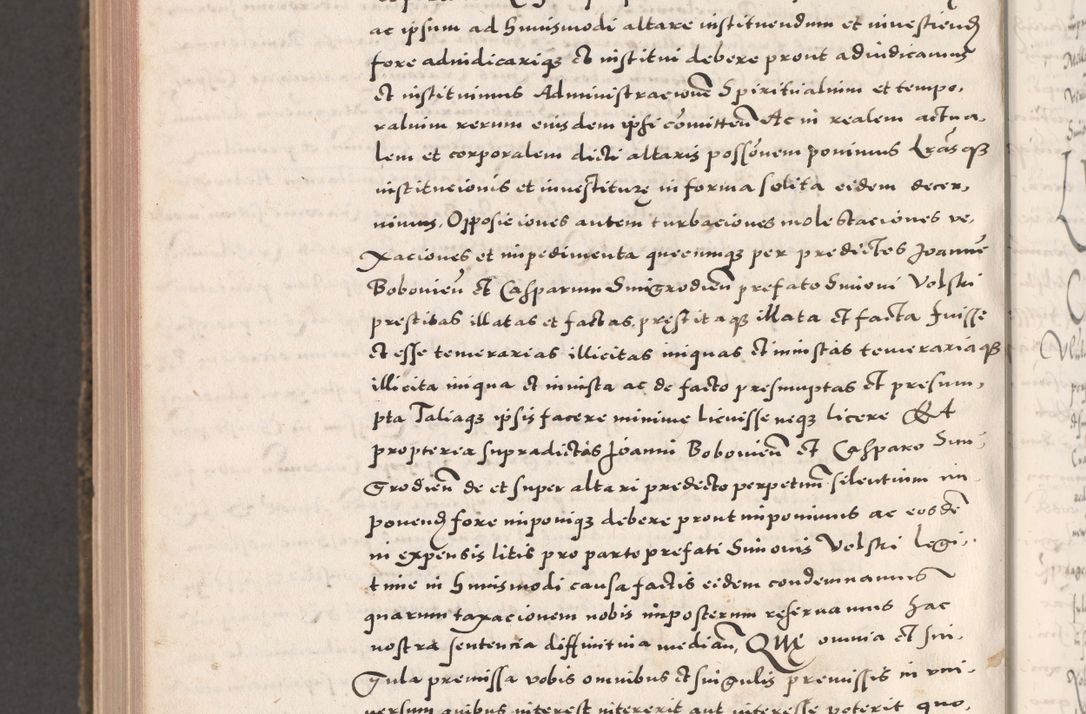 ac ipsum ad huiusmodi altare instituendum et investiend
fore adiudicariq3 et institui debere prout adiudicamus
et instituimus Administracionē Spiritualium et tempo,
ralium rerum eiusdem ipsi cōmitteñ Ac in realem actua,
lem et corporalem dicti altaris possōnem ponimus Lrās q3
institucionis et investiturę in forma solita eidem decer,
nimus. Opposiciones autem turbaciones molestaciones ve,
xaciones et impedimenta quecumq3 per predictos Joannē
Bobovieñ et Casparum Smigrodieñ prefato Simoni Volski
prestitas illatas et factas, pręstitaq3 illata et facta fuisse
et esse temerarias illicitas iniquas et iniustas temerariaq3
illicita iniqua et iniusta ac de facto presumptas et presum,
pta Taliaq3 ipsis facere minime licuisse neq3 licere Et
propterea supradictos Joanni Bobovieñ et Casparo Smi
Grodieñ de et super altari predicto perpetuū silentium im
ponend fore imponiq3 debere prout imponimus ac eosdē
in expensis litis pro parte prefati Simonis Volski legi,
time in huiusmodi causa factis eidem condemnamus
quarum taxacionem nobis imposterum reservamus hac
nostra sentencia diffinitiva mediañ, Quę omnia et sin,
Gula premissa vobis omnibus et singulis premissis in uni,
versum quibus interest intererit aut interesse poterit quo,